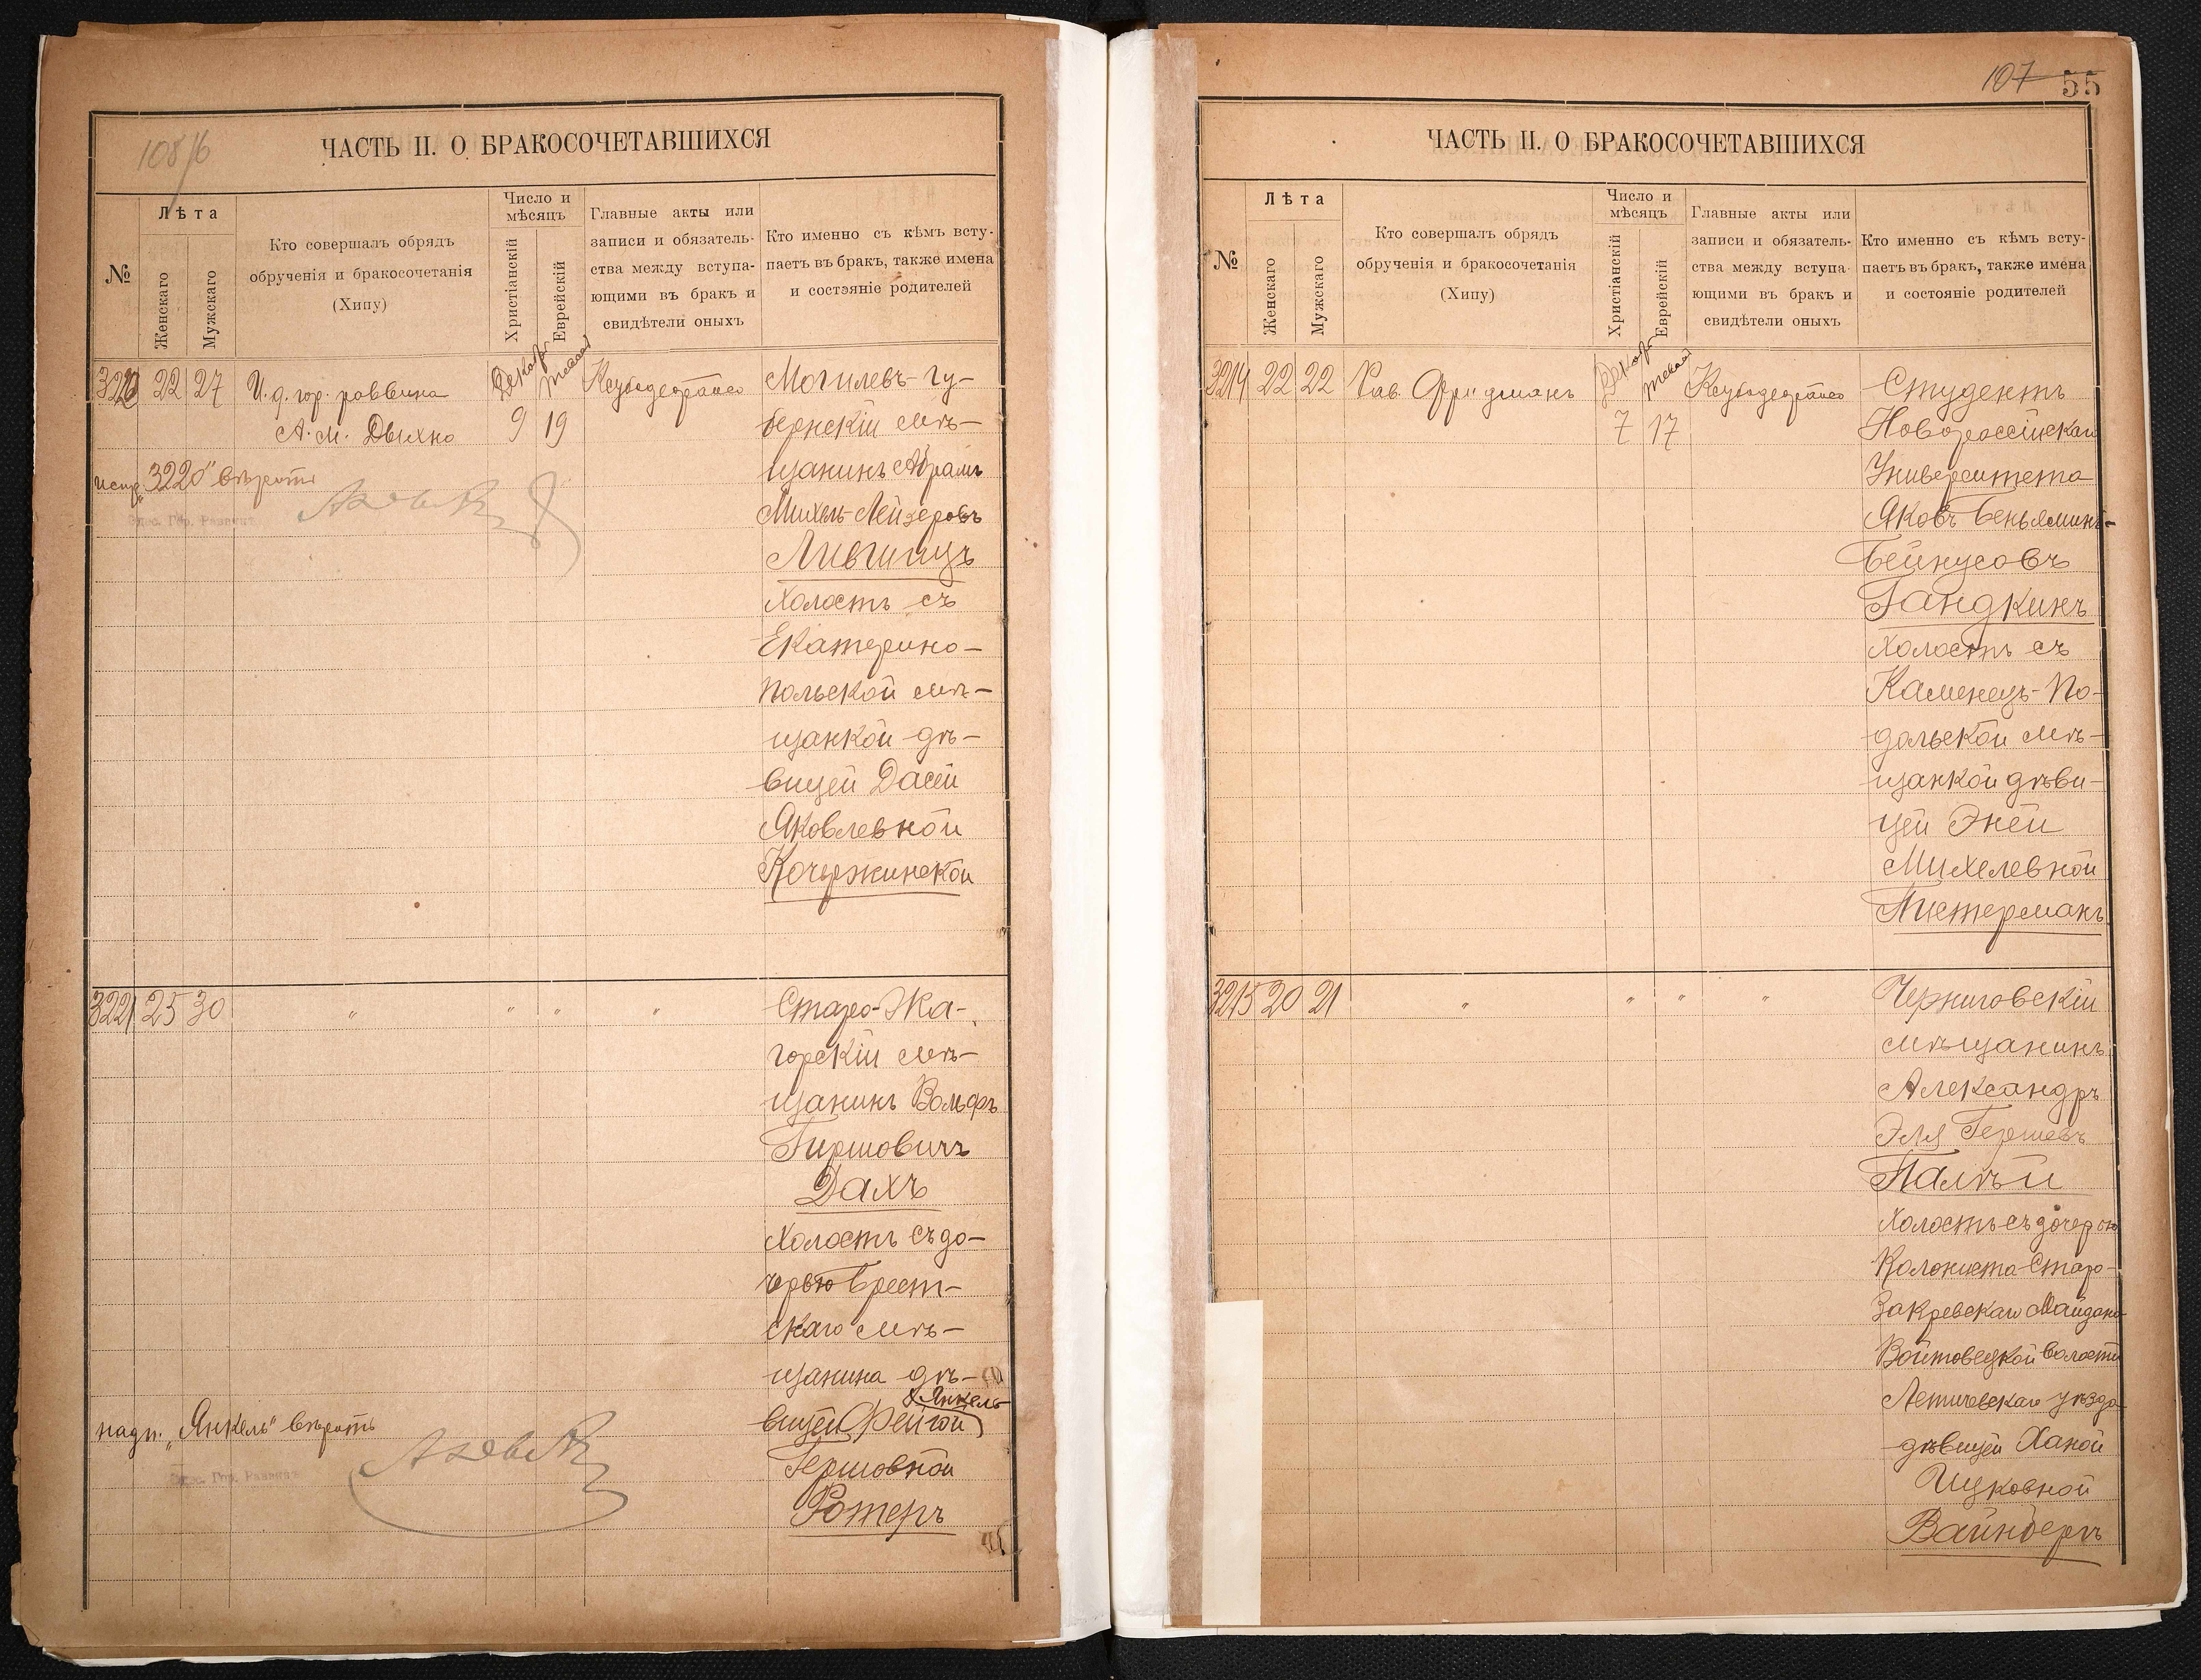 108/6
ЧАСТЬ II. О БРАКОСОЧЕТАВШИХСЯ
№
Лѣта
Женскаго
Мужскаго
Кто совершалъ обрядъ
обрученія и бракосочетанія
(Хипу)
Число и
мѣсяцъ
Христіанскій
Еврейскій
Главные акты или
записи и обязатель-
ства между вступа-
ющими въ бракъ и
свидѣтели оныхъ
Кто именно съ кѣмъ всту-
паетъ въ бракъ, также имена
и состояніе родителей
3220 22 27
И. д. гор. раввина
А. М. Дыхно
Декабр
9 19
Могилевъ-Гу-
бернскій мѣ-
щанинъ Абрамъ
Михель-Лейзеровъ
Лившицъ
Холостъ съ
Екатерино-
польской мѣ-
щанкой дѣ-
вицей Дасей
Яковлевной
Кочержинской
испр. „3220" вѣрить
Одес. Гор. Раввинъ
3221 25 30 " " " "
Старо-Жа-
горскій мѣ-
щанинъ Вольфъ
Гиршовичъ
Дахъ
Холостъ съ до-
черью Брест-
скаго мѣ-
щанина дѣ-
Янкель
вицей Фейгой
Гершовной
Ротеръ
надп. „Янкель" вѣрить
Одес. Гор. Раввинъ
107 55
ЧАСТЬ II. О БРАКОСОЧЕТАВШИХСЯ
№
Лѣта
Женскаго
Мужскаго
Кто совершалъ обрядъ
обрученія и бракосочетанія
(Хипу)
Число и
мѣсяцъ
Христіанскій
Еврейскій
Главные акты или
записи и обязатель-
ства между вступа-
ющими въ бракъ и
свидѣтели оныхъ
Кто именно съ кѣмъ всту-
паетъ въ бракъ, также имена
и состояніе родителей
3214 22 22
Рав. Фридманъ
Декабр
7 17
Студентъ
Новороссійскаго
Университета
Яковъ Беньяминъ-
Бейнусовъ
Гандкинъ
Холостъ съ
Каменецъ-По-
дольской мѣ-
щанкой дѣви-
цей Эней
Михелевной
Пистерманъ
3215 20 21 " " " "
Черниговскій
мѣщанинъ
Александръ
Эля Гершевъ
Палѣй
Холостъ съ дочерью
Колониста Старо-
Закревскаго Майдана
Войтовецкой волости
Летичевскаго уѣзда
дѣвицей Ханой
Ицковной
Вайнбергъ